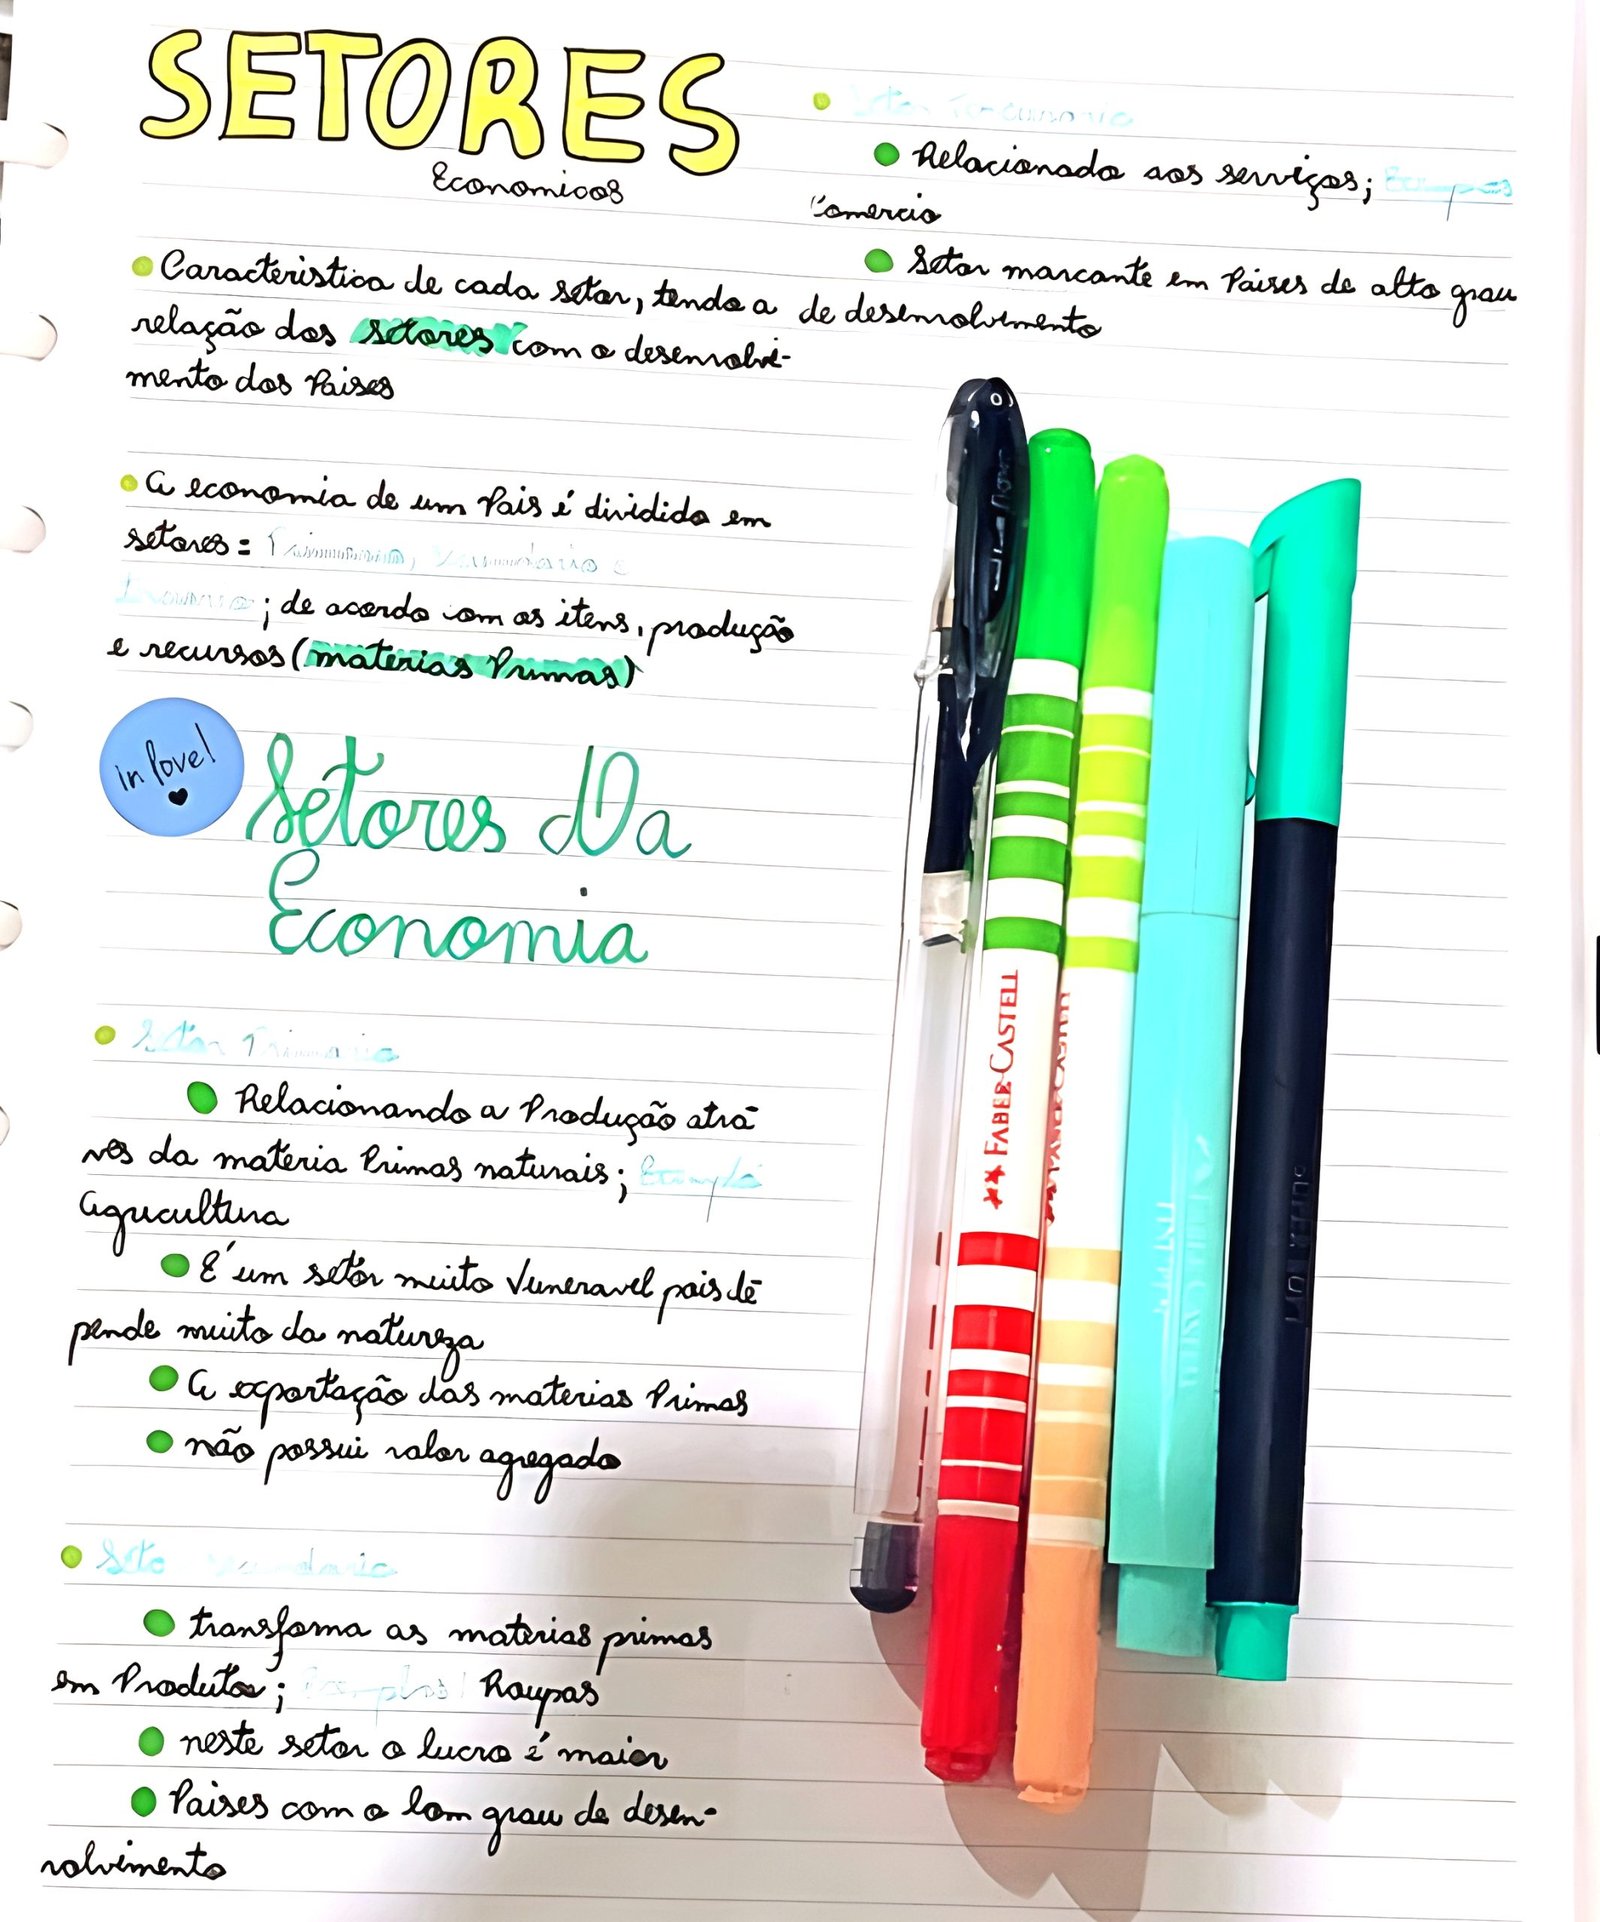 SETORES
Economicos
Caracteristica de cada setor, tendo a
relação dos setores com o desenvolvi-
mento dos Paises
A economia de um Pais é dividido em
setores =
; de acordo com os itens, produção
e recursos (materias Primas)
in love!
Setores Da
Economia
Setor
Relacionando a Produção atra
ves da materia Primas naturais;
agricultura
É um setor muito Vuneravel pois de
pende muito da natureza
A exportação das materias Primas
não possui valor agregado
secundario
transforma as materias primas
em Produtos; Exemplos: Roupas
neste setor o lucro é maior
Paises com o bom grau de desen-
volvimento
Setor
Relacionado aos serviços;
Comercio
Setor marcante em Paises de alto grau
de desenvolvimento
FABER-CASTELL